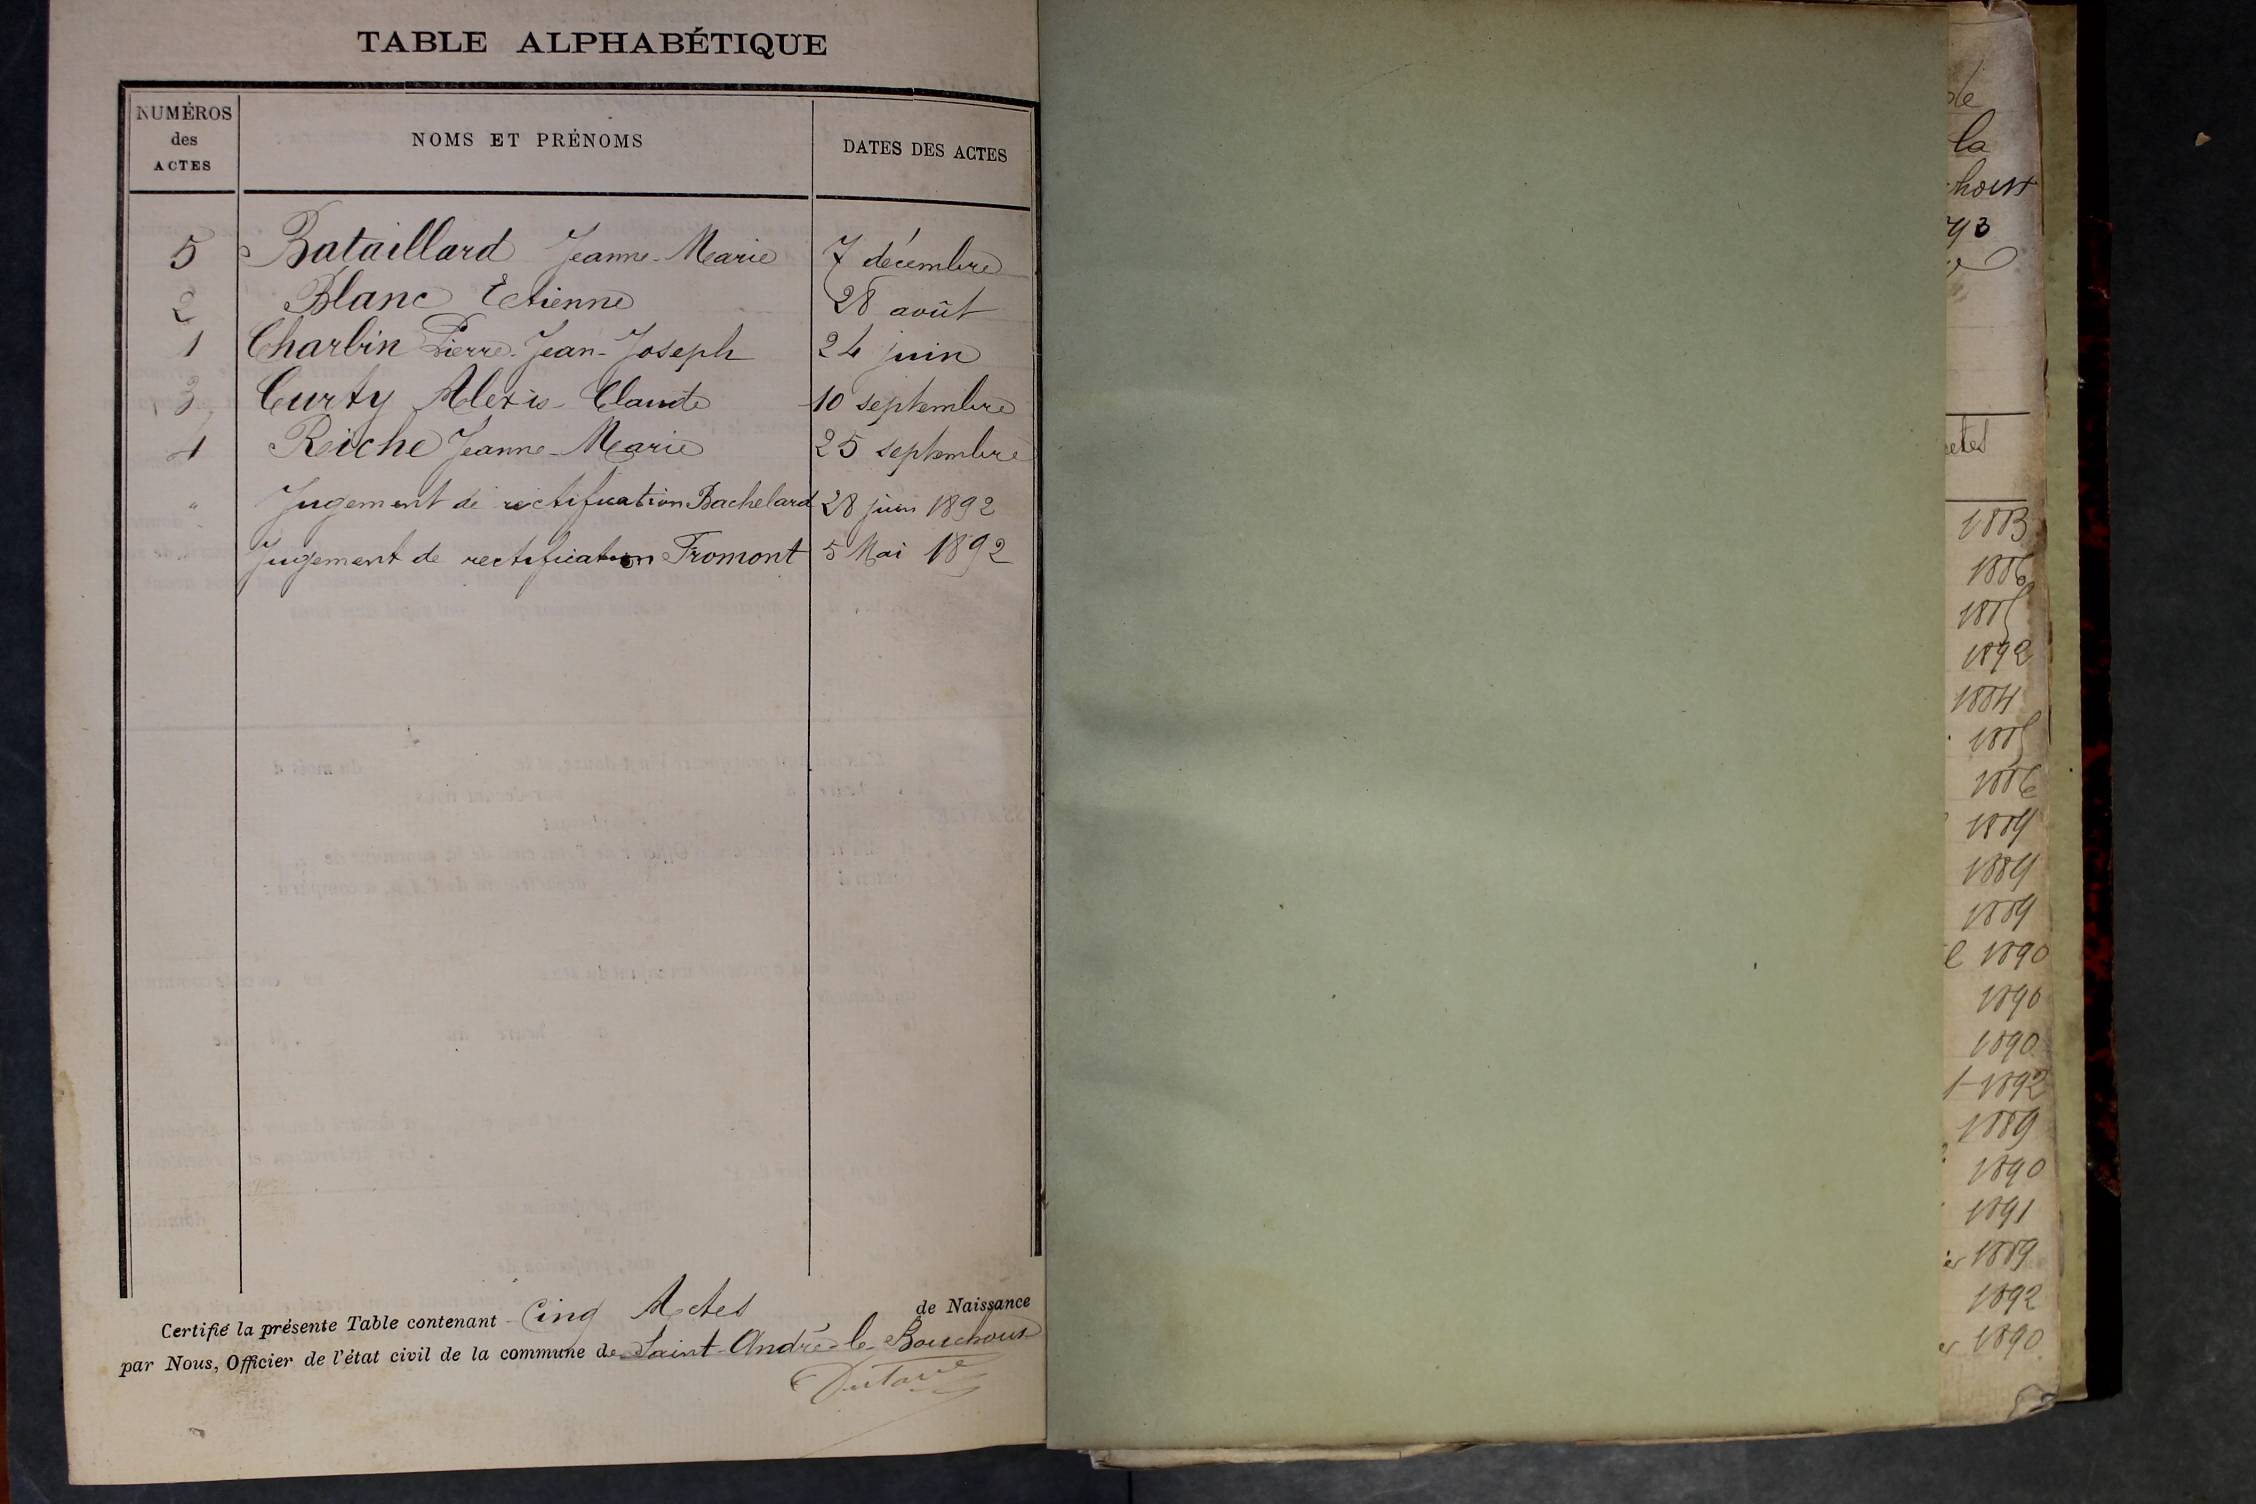 TABLE ALPHABÉTIQUE
NUMÉROS des ACTES
NOMS ET PRÉNOMS
DATES DES ACTES
5 Bataillard Jeanne-Marie 7 décembre
2 Blanc Etienne 28 août
1 Charbin Pierre-Jean-Joseph 24 juin
3 Curty Alexis-Claude 10 septembre
4 Reiche Jeanne-Marie 25 septembre
" Jugement de rectification Bachelard 28 juin 1892
" Jugement de rectification Fromont 5 Mai 1892
Certifié la présente Table contenant Cinq Actes de Naissance
par Nous, Officier de l'état civil de la commune de Saint-André-le-Bouchoux
de
la
1883
1886
1885
1892
1884
1885
1886
1889
1889
1889
1890
1890
1890
1892
1889
1890
1891
1889
1892
1890